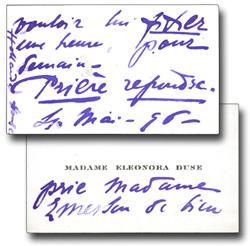 vouloir lui fixer
une heure, pour
demain—
Prière repondre.
Mai - 96 -
MADAME ELEONORA DUSE
prie Madame
Emerson de bien